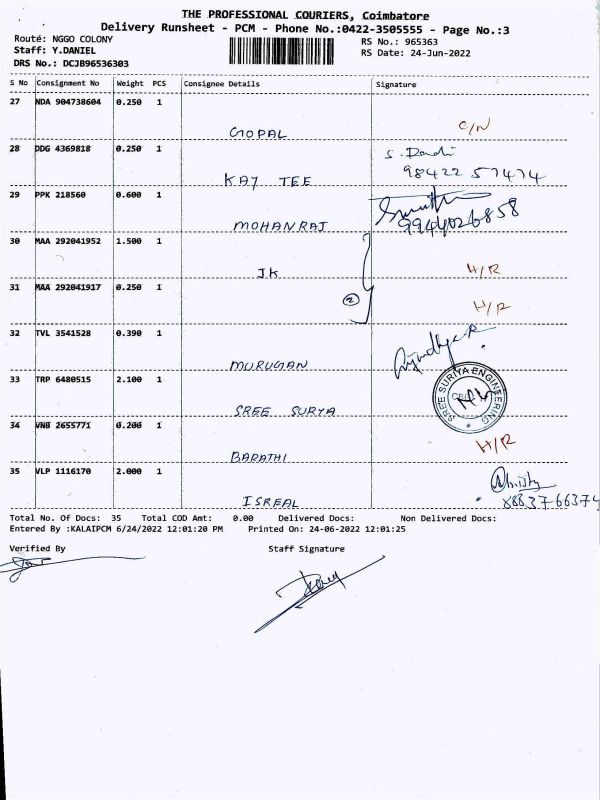 THE PROFESSIONAL COURIERS, Coimbatore
Delivery Runsheet - PCM - Phone No.:0422-3505555 - Page No.:3
Route: NGGO COLONY
RS No.: 965363
Staff: Y.DANIEL
RS Date: 24-Jun-2022
DRS No.: DCJB96536303
S No Consignment No Weight PCS Consignee Details Signature
27 NDA 904738604 0.250 1
GOPAL C/N
28 DDG 4369818 0.250 1 S.
KAY TEE 98422 57474
29 PPK 218560 0.600 1
MOHANRAJ 9944026858
30 MAA 292041952 1.500 1
JK H/R
31 MAA 292041917 0.250 1
2 H/R
32 TVL 3541528 0.390 1
MURUGAN
33 TRP 6480515 2.100 1
SREE SURIYA ENGINEERING
SREE SURYA
34 VNB 2655771 0.200 1
BARATHI H/R
35 VLP 1116170 2.000 1
ISREAL 8883766374
Total No. Of Docs: 35 Total COD Amt: 0.00 Delivered Docs: Non Delivered Docs:
Entered By :KALAIPCM 6/24/2022 12:01:20 PM Printed On: 24-06-2022 12:01:25
Verified By Staff Signature